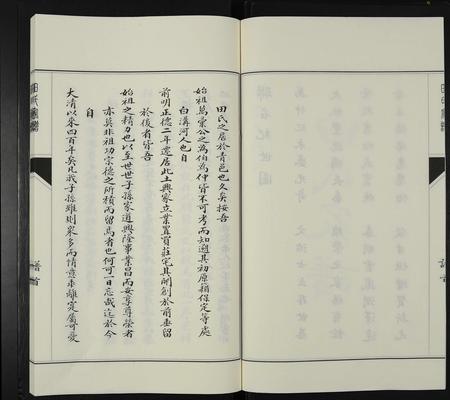 田氏之居於青邑也久矣按吾
始祖萬棠公之為伯為仲皆不可考而知迺其初原籍保定等處
白溝河人也自
前明正德二年遷居此土興家立業置買莊宅其開創於前垂留
於後者皆吾
始祖之精力也以至世世子孫家道興隆事業昌而安享尊榮者
亦莫非祖功宗德之所積而留焉者也何可一日忘哉迄於今
自
大清以來四百年矣凡我子孫雖則眾多而情意乖離定屬可憂
譜首